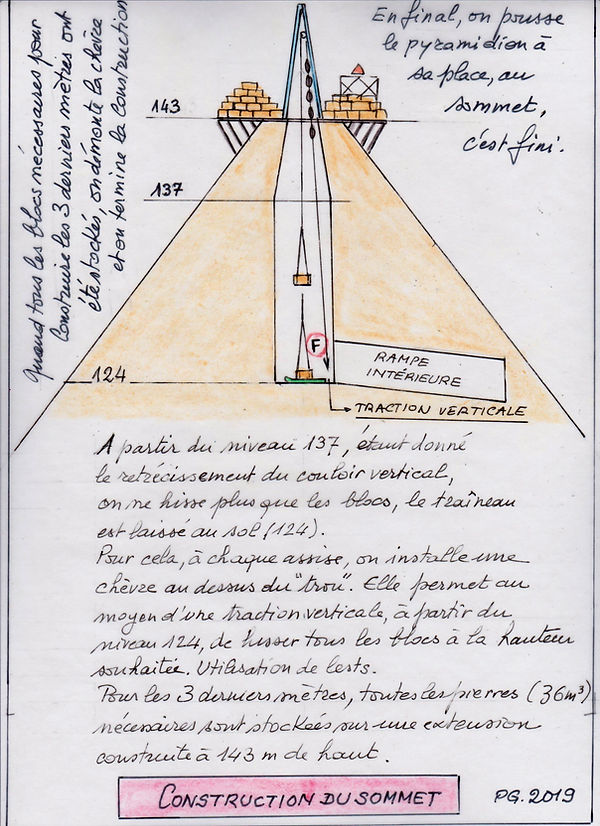 Quand tous les blocs nécessaires pour
construire les 3 derniers mètres ont
été stockés, on démonte la chèvre
et on termine la construction
En final, on pousse
le pyramidion à
sa place, au
sommet,
c'est fini.
143
137
F
RAMPE
INTÉRIEURE
124
TRACTION VERTICALE
A partir du niveau 137, étant donné
le retrécissement du couloir vertical,
on ne hisse plus que les blocs, le traîneau
est laissé au sol (124).
Pour cela, à chaque assise, on installe une
chèvre au dessus du "trou". Elle permet au
moyen d'une traction verticale, à partir du
niveau 124, de hisser tous les blocs à la hauteur
souhaitée. Utilisation de lests.
Pour les 3 derniers mètres, toutes les pierres (36m³)
nécessaires sont stockées sur une extension
construite à 143 m de haut.
CONSTRUCTION DU SOMMET
PG. 2019